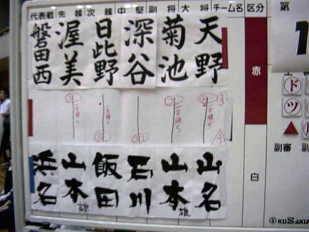 代表戦 先鋒 次鋒 中堅 副将 大将 チーム名 区分
天野
菊池
深谷
日比野
渥美
磐田西
赤
山名
山本 雄
石川
飯田
山本
浜名
白
第1
ド
ツ
▲
副審
KUSAKURA